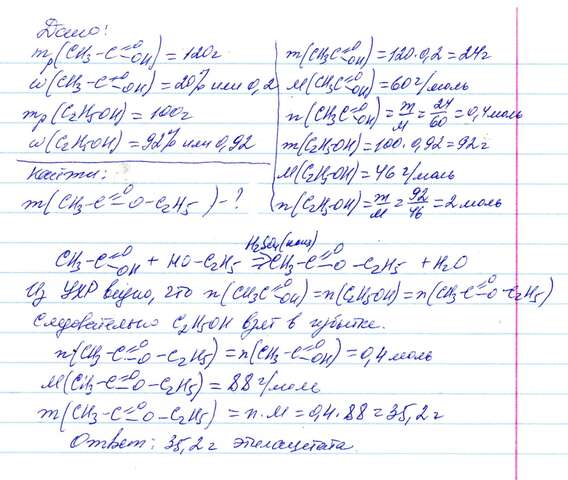 Дано:
mр(CH3-C(=O)OH) = 120г
ω(CH3-C(=O)OH) = 20% или 0,2
mр(C2H5OH) = 100г
ω(C2H5OH) = 92% или 0,92
Найти:
m(CH3-C(=O)-O-C2H5) - ?
m(CH3C(=O)OH) = 120·0,2 = 24г
M(CH3C(=O)OH) = 60 г/моль
n(CH3C(=O)OH) = m/M = 24/60 = 0,4 моль
m(C2H5OH) = 100·0,92 = 92г
M(C2H5OH) = 46 г/моль
n(C2H5OH) = m/M = 92/46 = 2 моль
H2SO4(конц)
CH3-C(=O)OH + HO-C2H5 ⇄ CH3-C(=O)-O-C2H5 + H2O
Из УХР видно, что n(CH3C(=O)OH) = n(C2H5OH) = n(CH3-C(=O)-O-C2H5)
Следовательно C2H5OH взят в избытке.
n(CH3-C(=O)-O-C2H5) = n(CH3-C(=O)OH) = 0,4 моль
M(CH3-C(=O)-O-C2H5) = 88 г/моль
m(CH3-C(=O)-O-C2H5) = n·M = 0,4·88 = 35,2 г
Ответ: 35,2 г этилацетата